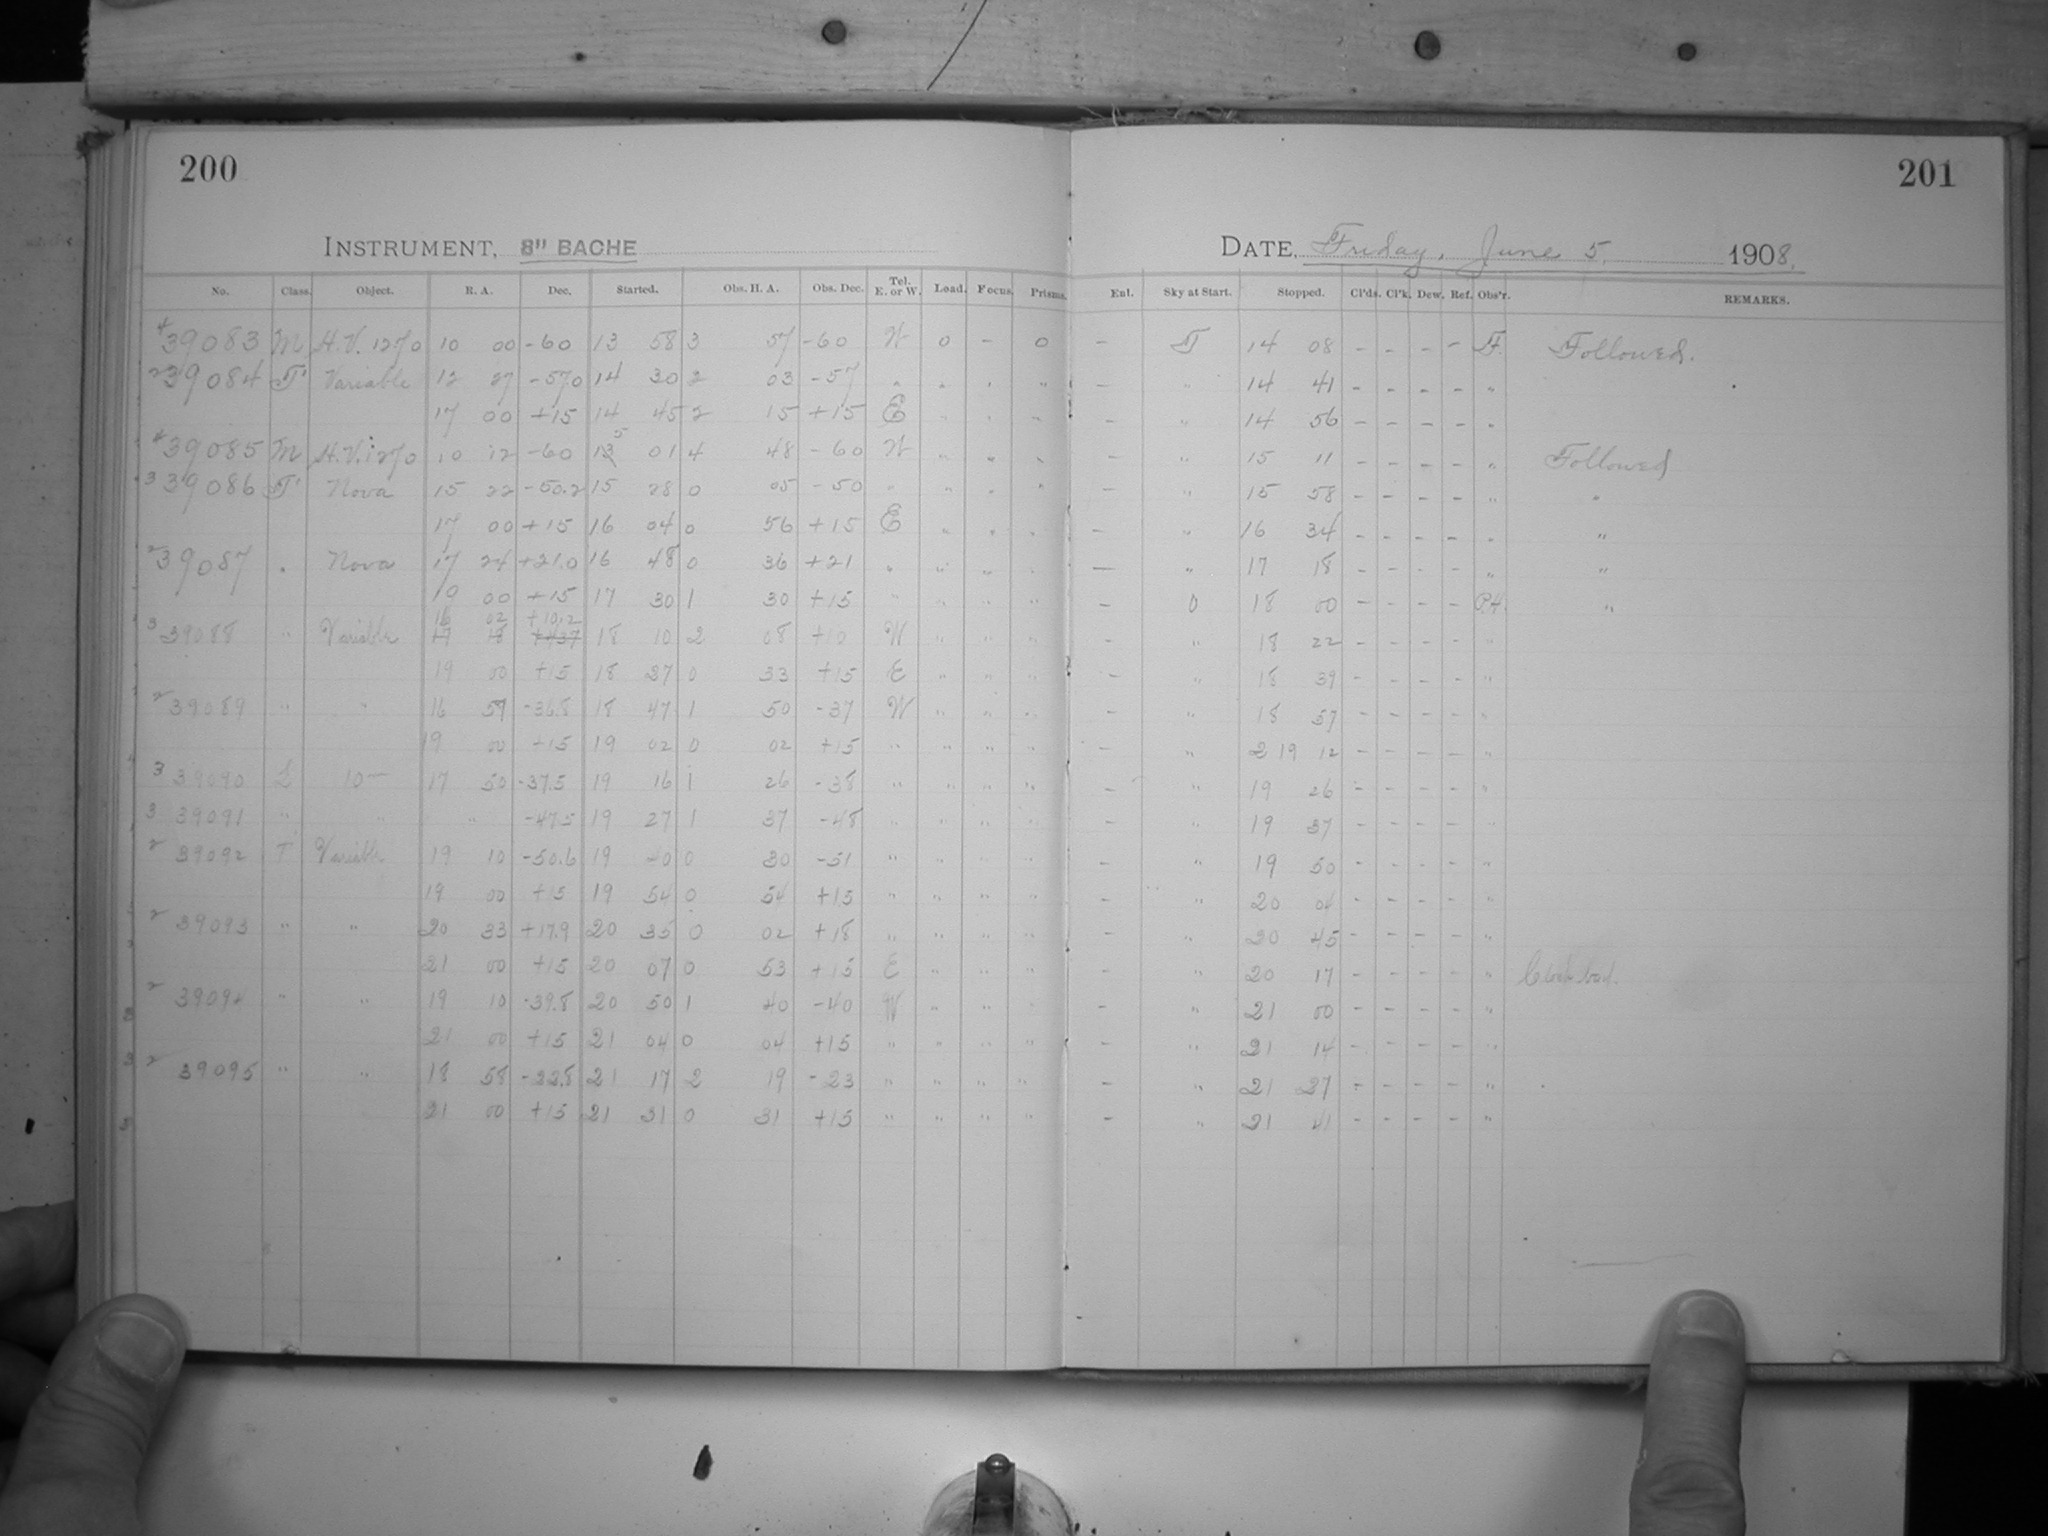 200
201
INSTRUMENT, 8" BACHE
DATE, Friday, June 5, 1908.
No. Class. Object. R. A. Dec. Started. Obs. H. A. Obs. Dec. Tel. E. or W. Load. Focus. Prisms. Enl. Sky at Start. Stopped. Cl'ds. Cl'k. Dew. Ref. Obs'r. REMARKS.
4 39083 M H.V. 1270 10 00 -60 13 58 3 57 -60 W 0 - 0 - 14 08 - - - - F. Followed.
2 39084 T Variable 12 27 -57.0 14 30 2 03 -57 " " " " - " 14 41 - - - - "
17 00 +15 14 45 2 15 +15 E " " " - " 14 56 - - - - "
4 39085 M H.V. 1270 10 12 -60 15 01 4 48 -60 W " " " - " 15 11 - - - - " Followed
3 39086 T Nova 15 22 -50.2 15 28 0 05 -50 " " " " - " 15 58 - - - - " "
17 00 +15 16 04 0 56 +15 E " " " - " 16 34 - - - - " "
2 39087 " Nova 17 24 +21.0 16 48 0 36 +21 " " " " - " 17 18 - - - - " "
19 00 +15 17 30 1 30 +15 " " " " - 0 18 00 - - - - "
16 02 +10.2
3 39088 " Variable 18 10 2 08 +10 W " " " - " 18 22 - - - - "
19 00 +15 18 27 0 33 +15 E " " " - " 18 39 - - - - "
2 39089 " " 16 57 -36.8 18 47 1 50 -37 W " " " - " 18 57 - - - - "
19 00 +15 19 02 0 02 +15 " " " " - " 19 12 - - - - "
3 39090 L 10m 17 50 -37.5 19 16 1 26 -38 " " " " - " 19 26 - - - - "
3 39091 " " " -47.5 19 27 1 37 -48 " " " " - " 19 37 - - - - "
2 39092 T Variable 19 10 -50.6 19 40 0 30 -51 " " " " - " 19 50 - - - - "
19 00 +15 19 54 0 54 +15 " " " " - " 20 04 - - - - "
2 39093 " " 20 33 +17.9 20 35 0 02 +18 " " " " - " 20 45 - - - - "
21 00 +15 20 07 0 53 +15 E " " " - " 20 17 - - - - " Clock bad.
2 39094 " " 19 10 -39.8 20 50 1 40 -40 W " " " - " 21 00 - - - - "
21 00 +15 21 04 0 04 +15 " " " " - " 21 14 - - - - "
2 39095 " " 18 58 -22.8 21 17 2 19 -23 " " " " - " 21 27 - - - - "
21 00 +15 21 31 0 31 +15 " " " " - " 21 41 - - - - "